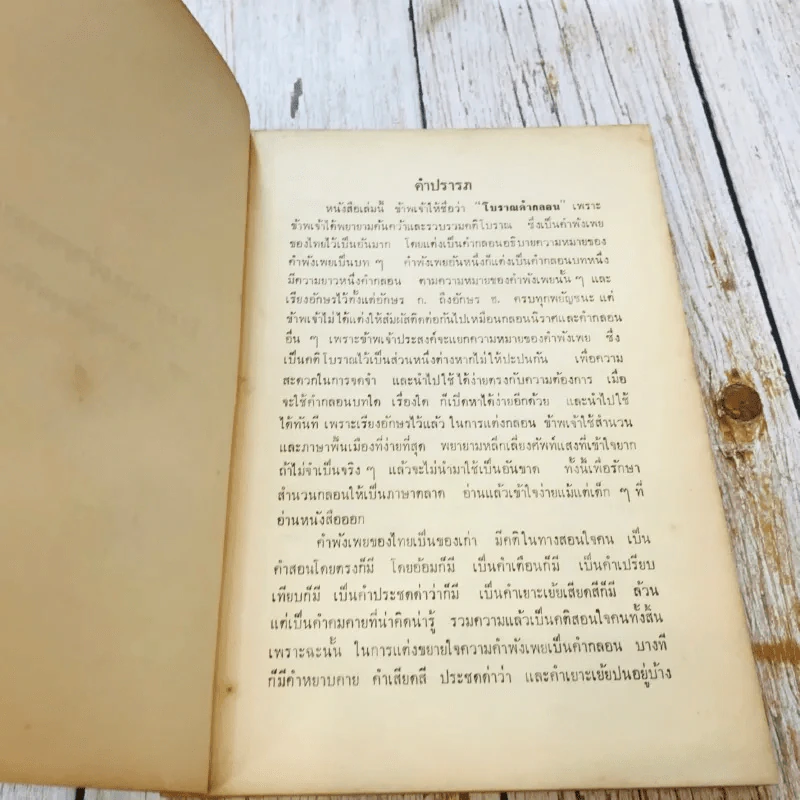 คำปรารภ
หนังสือเล่มนี้ ข้าพเจ้าให้ชื่อว่า "โบราณคำกลอน" เพราะ
ข้าพเจ้าได้พยายามค้นคว้าและรวบรวมคติโบราณ ซึ่งเป็นคำพังเพย
ของไทยไว้เป็นอันมาก โดยแต่งเป็นคำกลอนอธิบายความหมายของ
คำพังเพยเป็นบท ๆ คำพังเพยอันหนึ่งก็แต่งเป็นคำกลอนบทหนึ่ง
มีความยาวหนึ่งคำกลอน ตามความหมายของคำพังเพยนั้น ๆ และ
เรียงอักษรไว้ตั้งแต่อักษร ก. ถึงอักษร ฮ. ครบทุกพยัญชนะ แต่
ข้าพเจ้าไม่ได้แต่งให้สัมผัสติดต่อกันไปเหมือนกลอนนิราศและคำกลอน
อื่น ๆ เพราะข้าพเจ้าประสงค์จะแยกความหมายของคำพังเพย ซึ่ง
เป็นคติโบราณไว้เป็นส่วนหนึ่งต่างหากไม่ให้ปะปนกัน เพื่อความ
สะดวกในการจดจำ และนำไปใช้ได้ง่ายตรงกับความต้องการ เมื่อ
จะใช้คำกลอนบทใด เรื่องใด ก็เปิดหาได้ง่ายอีกด้วย และนำไปใช้
ได้ทันที เพราะเรียงอักษรไว้แล้ว ในการแต่งกลอน ข้าพเจ้าใช้สำนวน
และภาษาพื้นเมืองที่ง่ายที่สุด พยายามหลีกเลี่ยงศัพท์แสงที่เข้าใจยาก
ถ้าไม่จำเป็นจริง ๆ แล้วจะไม่นำมาใช้เป็นอันขาด ทั้งนี้เพื่อรักษา
สำนวนกลอนให้เป็นภาษาตลาด อ่านแล้วเข้าใจง่ายแม้แต่เด็ก ๆ ที่
อ่านหนังสือออก
คำพังเพยของไทยเป็นของเก่า มีคติในทางสอนใจคน เป็น
คำสอนโดยตรงก็มี โดยอ้อมก็มี เป็นคำเตือนก็มี เป็นคำเปรียบ
เทียบก็มี เป็นคำประชดด่าว่าก็มี เป็นคำเยาะเย้ยเสียดสีก็มี ล้วน
แต่เป็นคำคมคายที่น่าคิดน่ารู้ รวมความแล้วเป็นคติสอนใจคนทั้งสิ้น
เพราะฉะนั้น ในการแต่งขยายใจความคำพังเพยเป็นคำกลอน บางที
ก็มีคำหยาบคาย คำเสียดสี ประชดด่าว่า และคำเยาะเย้ยปนอยู่บ้าง